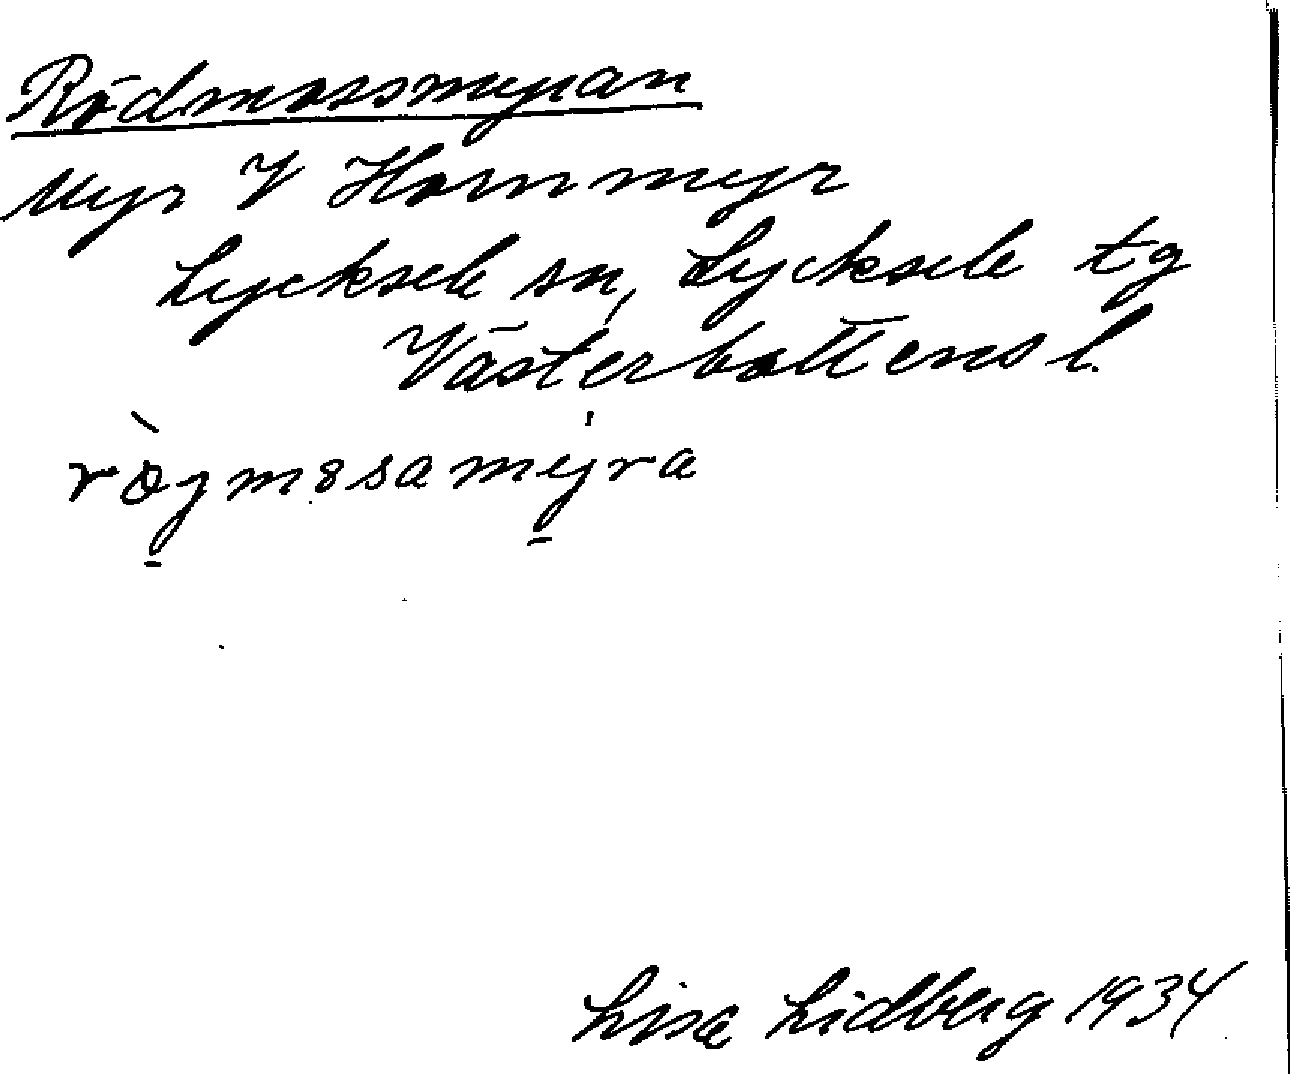 Rödmossmyran
Myr V Hornmyr
Lycksele sn, Lycksele tg
Västerbottens l.
Lisa Lidberg 1934